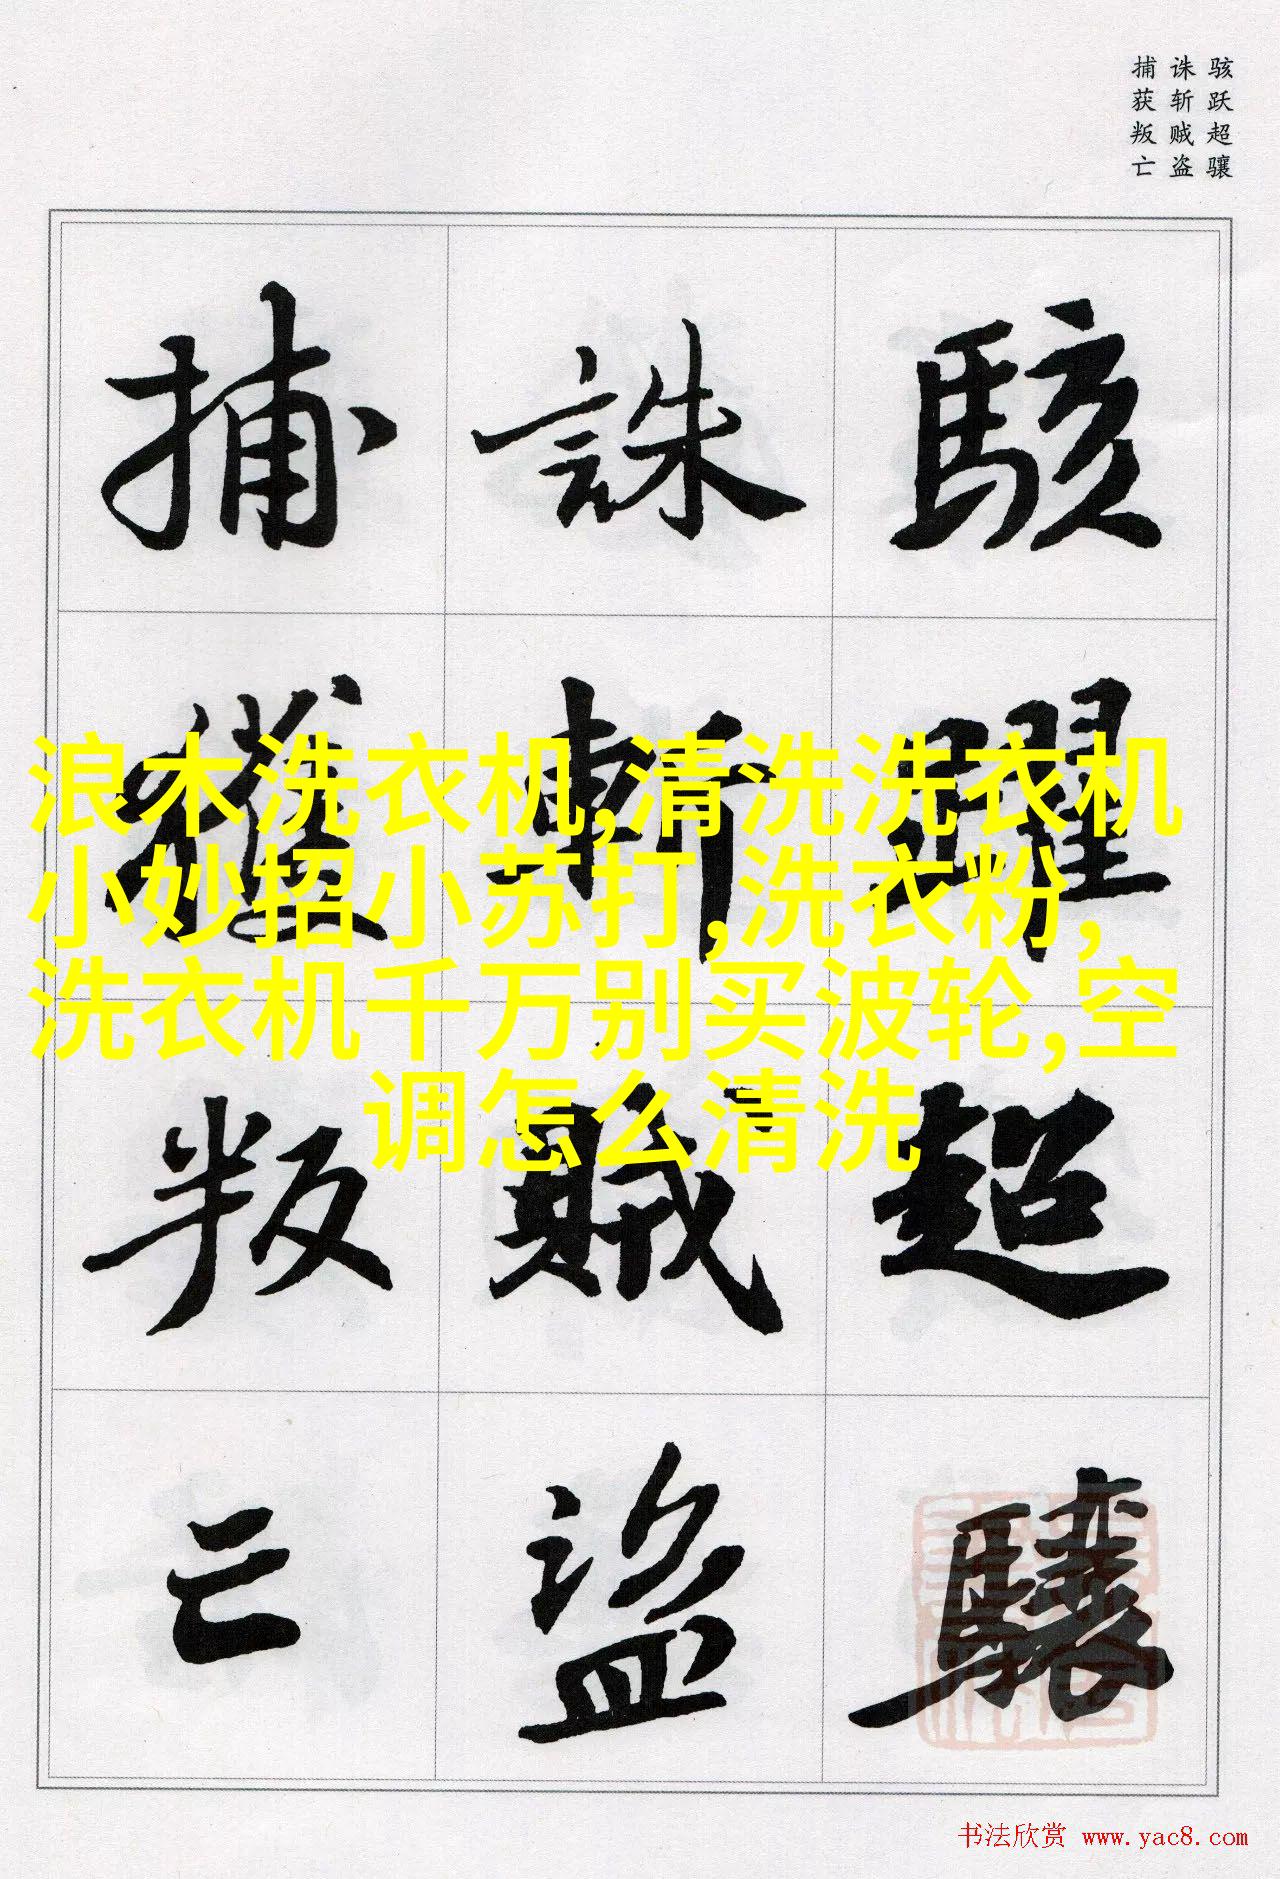 骇跃超骧
诛斩贼盗
捕获叛亡
駭躍超驤
誅斬賊盜
捕獲叛亡
浪木洗衣机,清洗洗衣机
小妙招小苏打,洗衣粉,
洗衣机千万别买波轮,空
调怎么清洗
书法欣赏 www.yac8.com